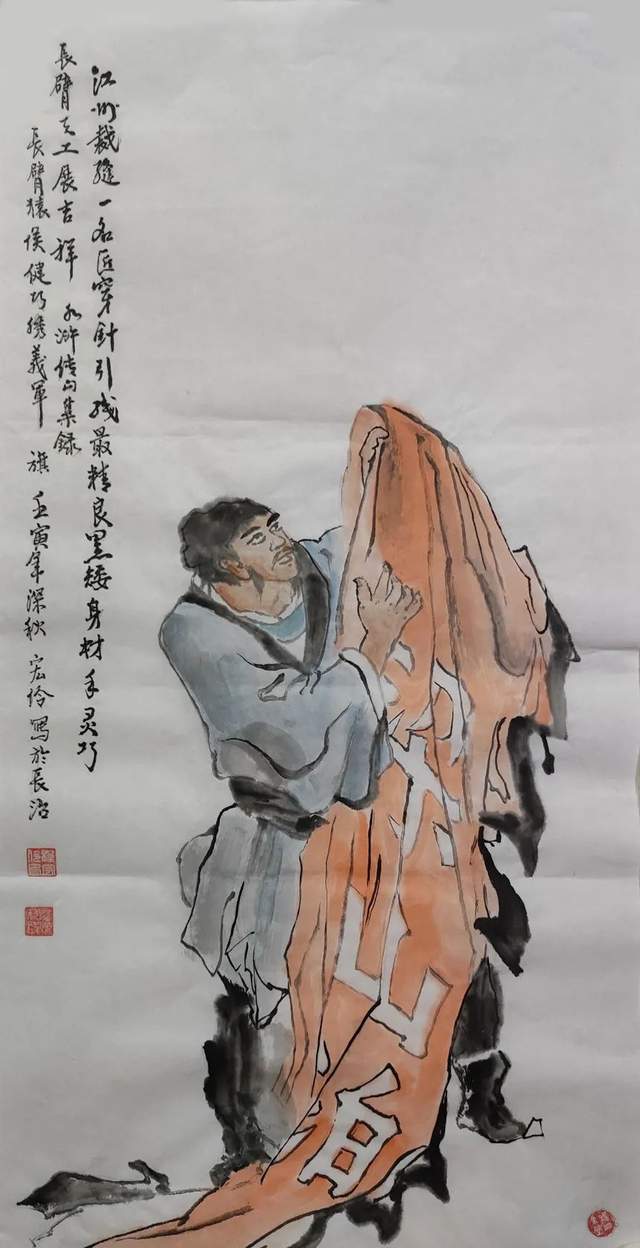 江州裁縫一名匠穿針引线最精良黑矮身材手灵巧
長臂天工展吉祥 水浒传句集録
長臂猿侯健巧绣義軍旗 壬寅年深秋 宏伶寫於長治